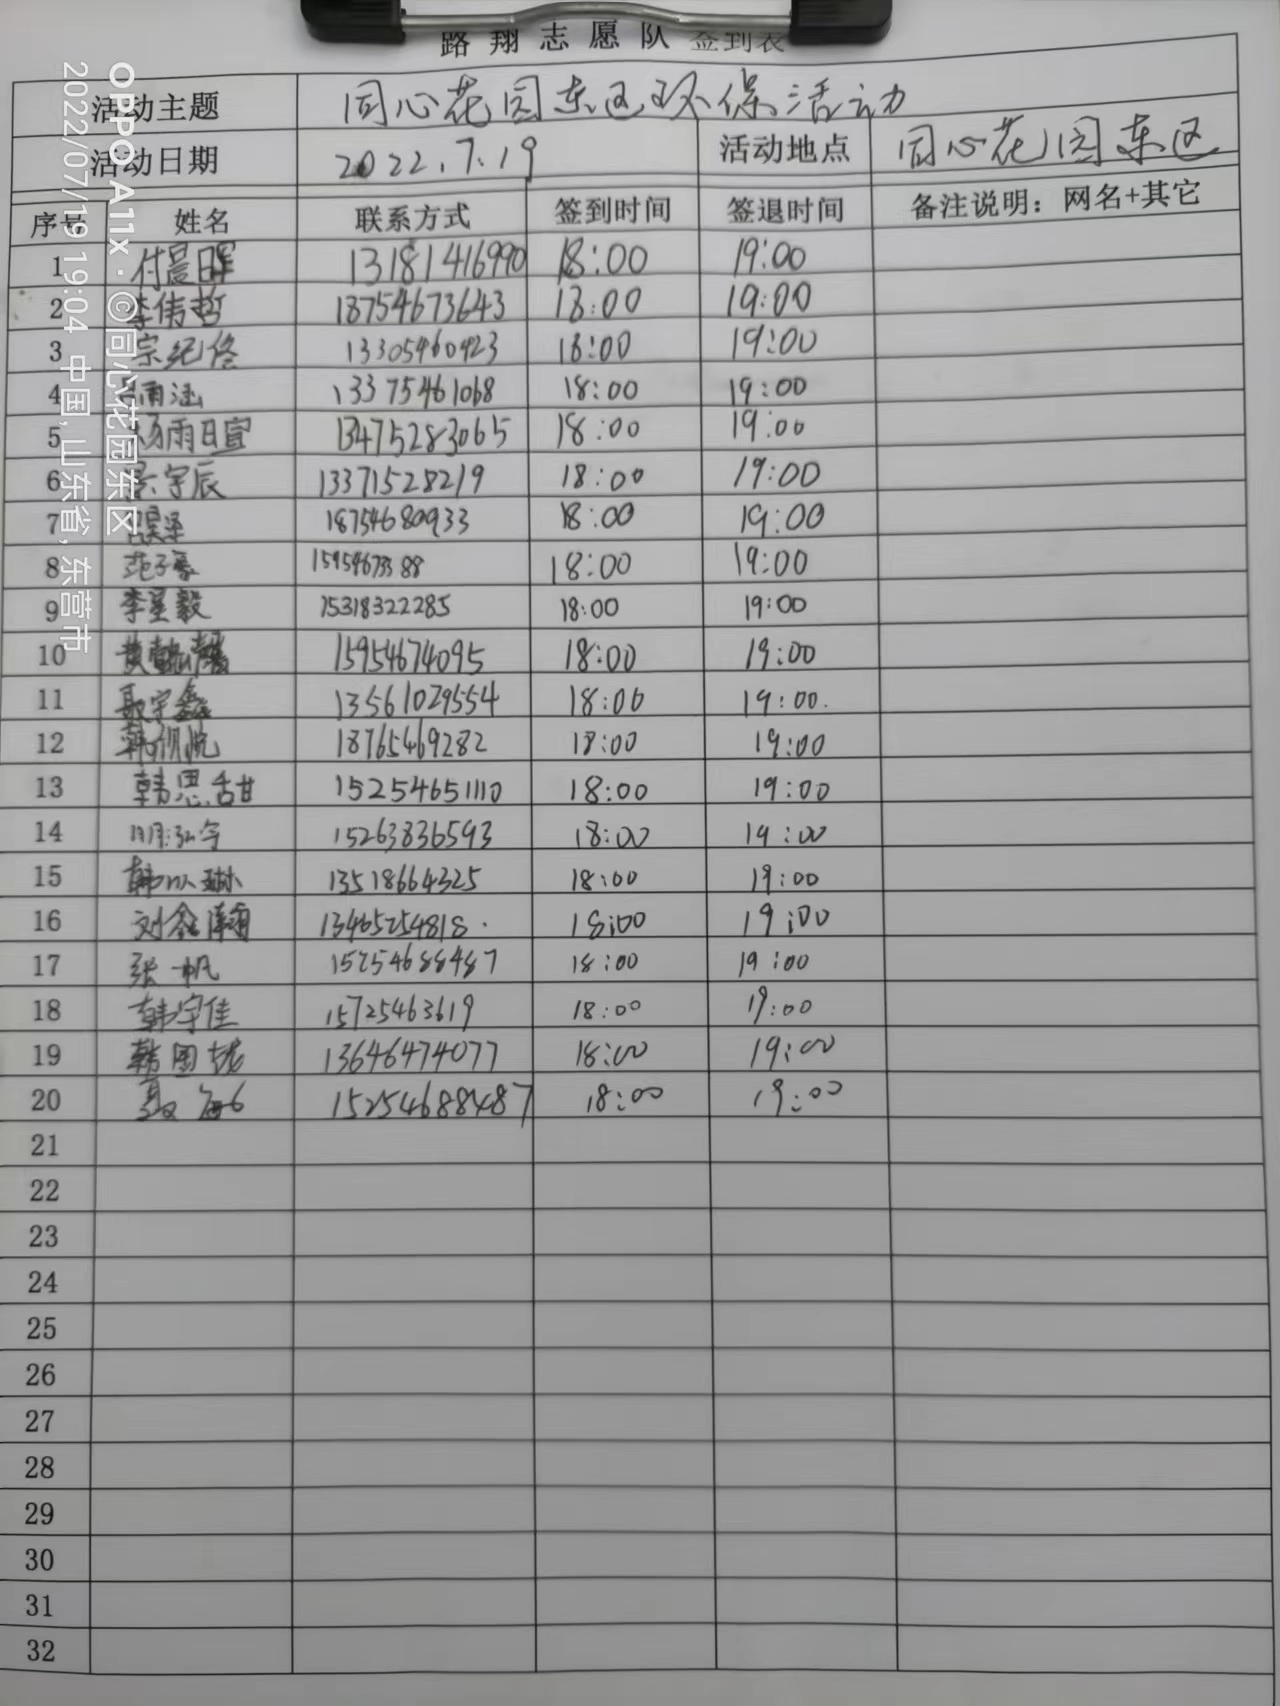 路翔志愿队签到表
活动主题 同心花园东区环保活动
活动日期 2022.7.19 活动地点 同心花园东区
序号 姓名 联系方式 签到时间 签退时间 备注说明：网名+其它
1 付晨晖 13181416990 18:00 19:00
2 李伟哲 18754673643 18:00 19:00
3 宗纪佟 13305460423 18:00 19:00
4 雨涵 13375461068 18:00 19:00
5 杨雨日宣 13475283065 18:00 19:00
6 宇辰 13371528219 18:00 19:00
7 18754680933 18:00 19:00
8 范子豪 15954673388 18:00 19:00
9 李星毅 15318322285 18:00 19:00
10 黄 15954674095 18:00 19:00
11 聂宇鑫 13561029554 18:00 19:00.
12 韩 18765469282 18:00 19:00
13 韩思甜 15254651110 18:00 19:00
14 15263836593 18:00 19:00
15 韩以琳 13518664325 18:00 19:00
16 刘鑫瀚 13465254818. 18:00 19:00
17 张一帆 15254688487 18:00 19:00
18 韩宇佳 15725463619 18:00 19:00
19 韩国栋 13646474077 18:00 19:00
20 聂 15254688487 18:00 19:00
21
22
23
24
25
26
27
28
29
30
31
32
OPPO A11x · ©同心花园东区
2022/07/19 19:04 中国, 山东省, 东营市